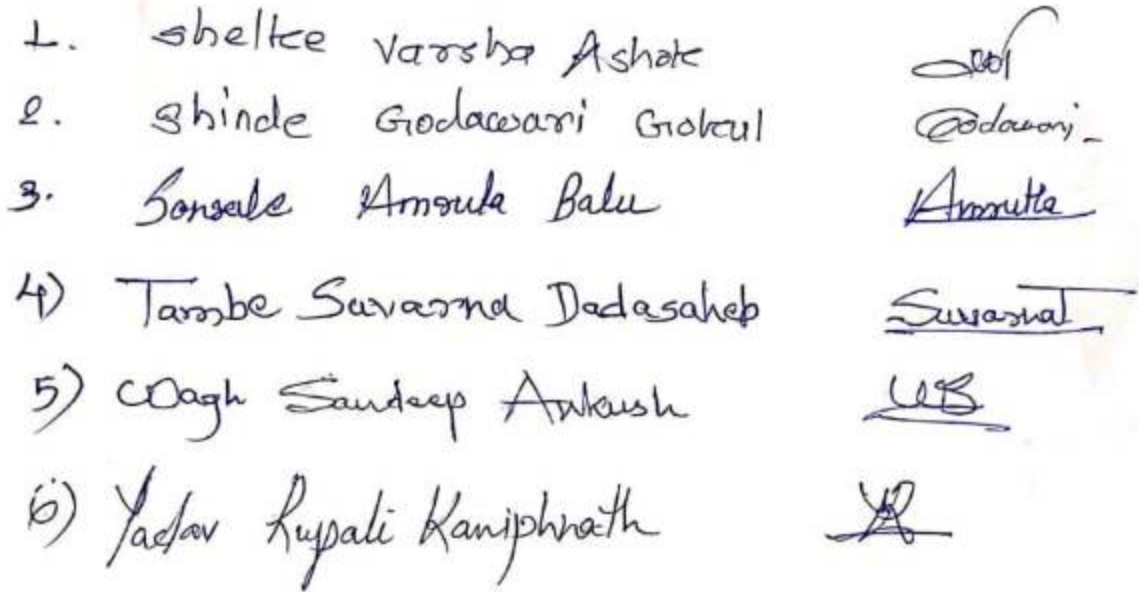 1. Shelke Varsha Ashok
2. Shinde Godawari Gokul Godawari
3. Sonsale Amruta Balu Amrutha
4) Tambe Suvarna Dadasaheb SuvarnaT
5) Wagh Sandeep Ankush
6) Yadav Rupali Kaniphnath